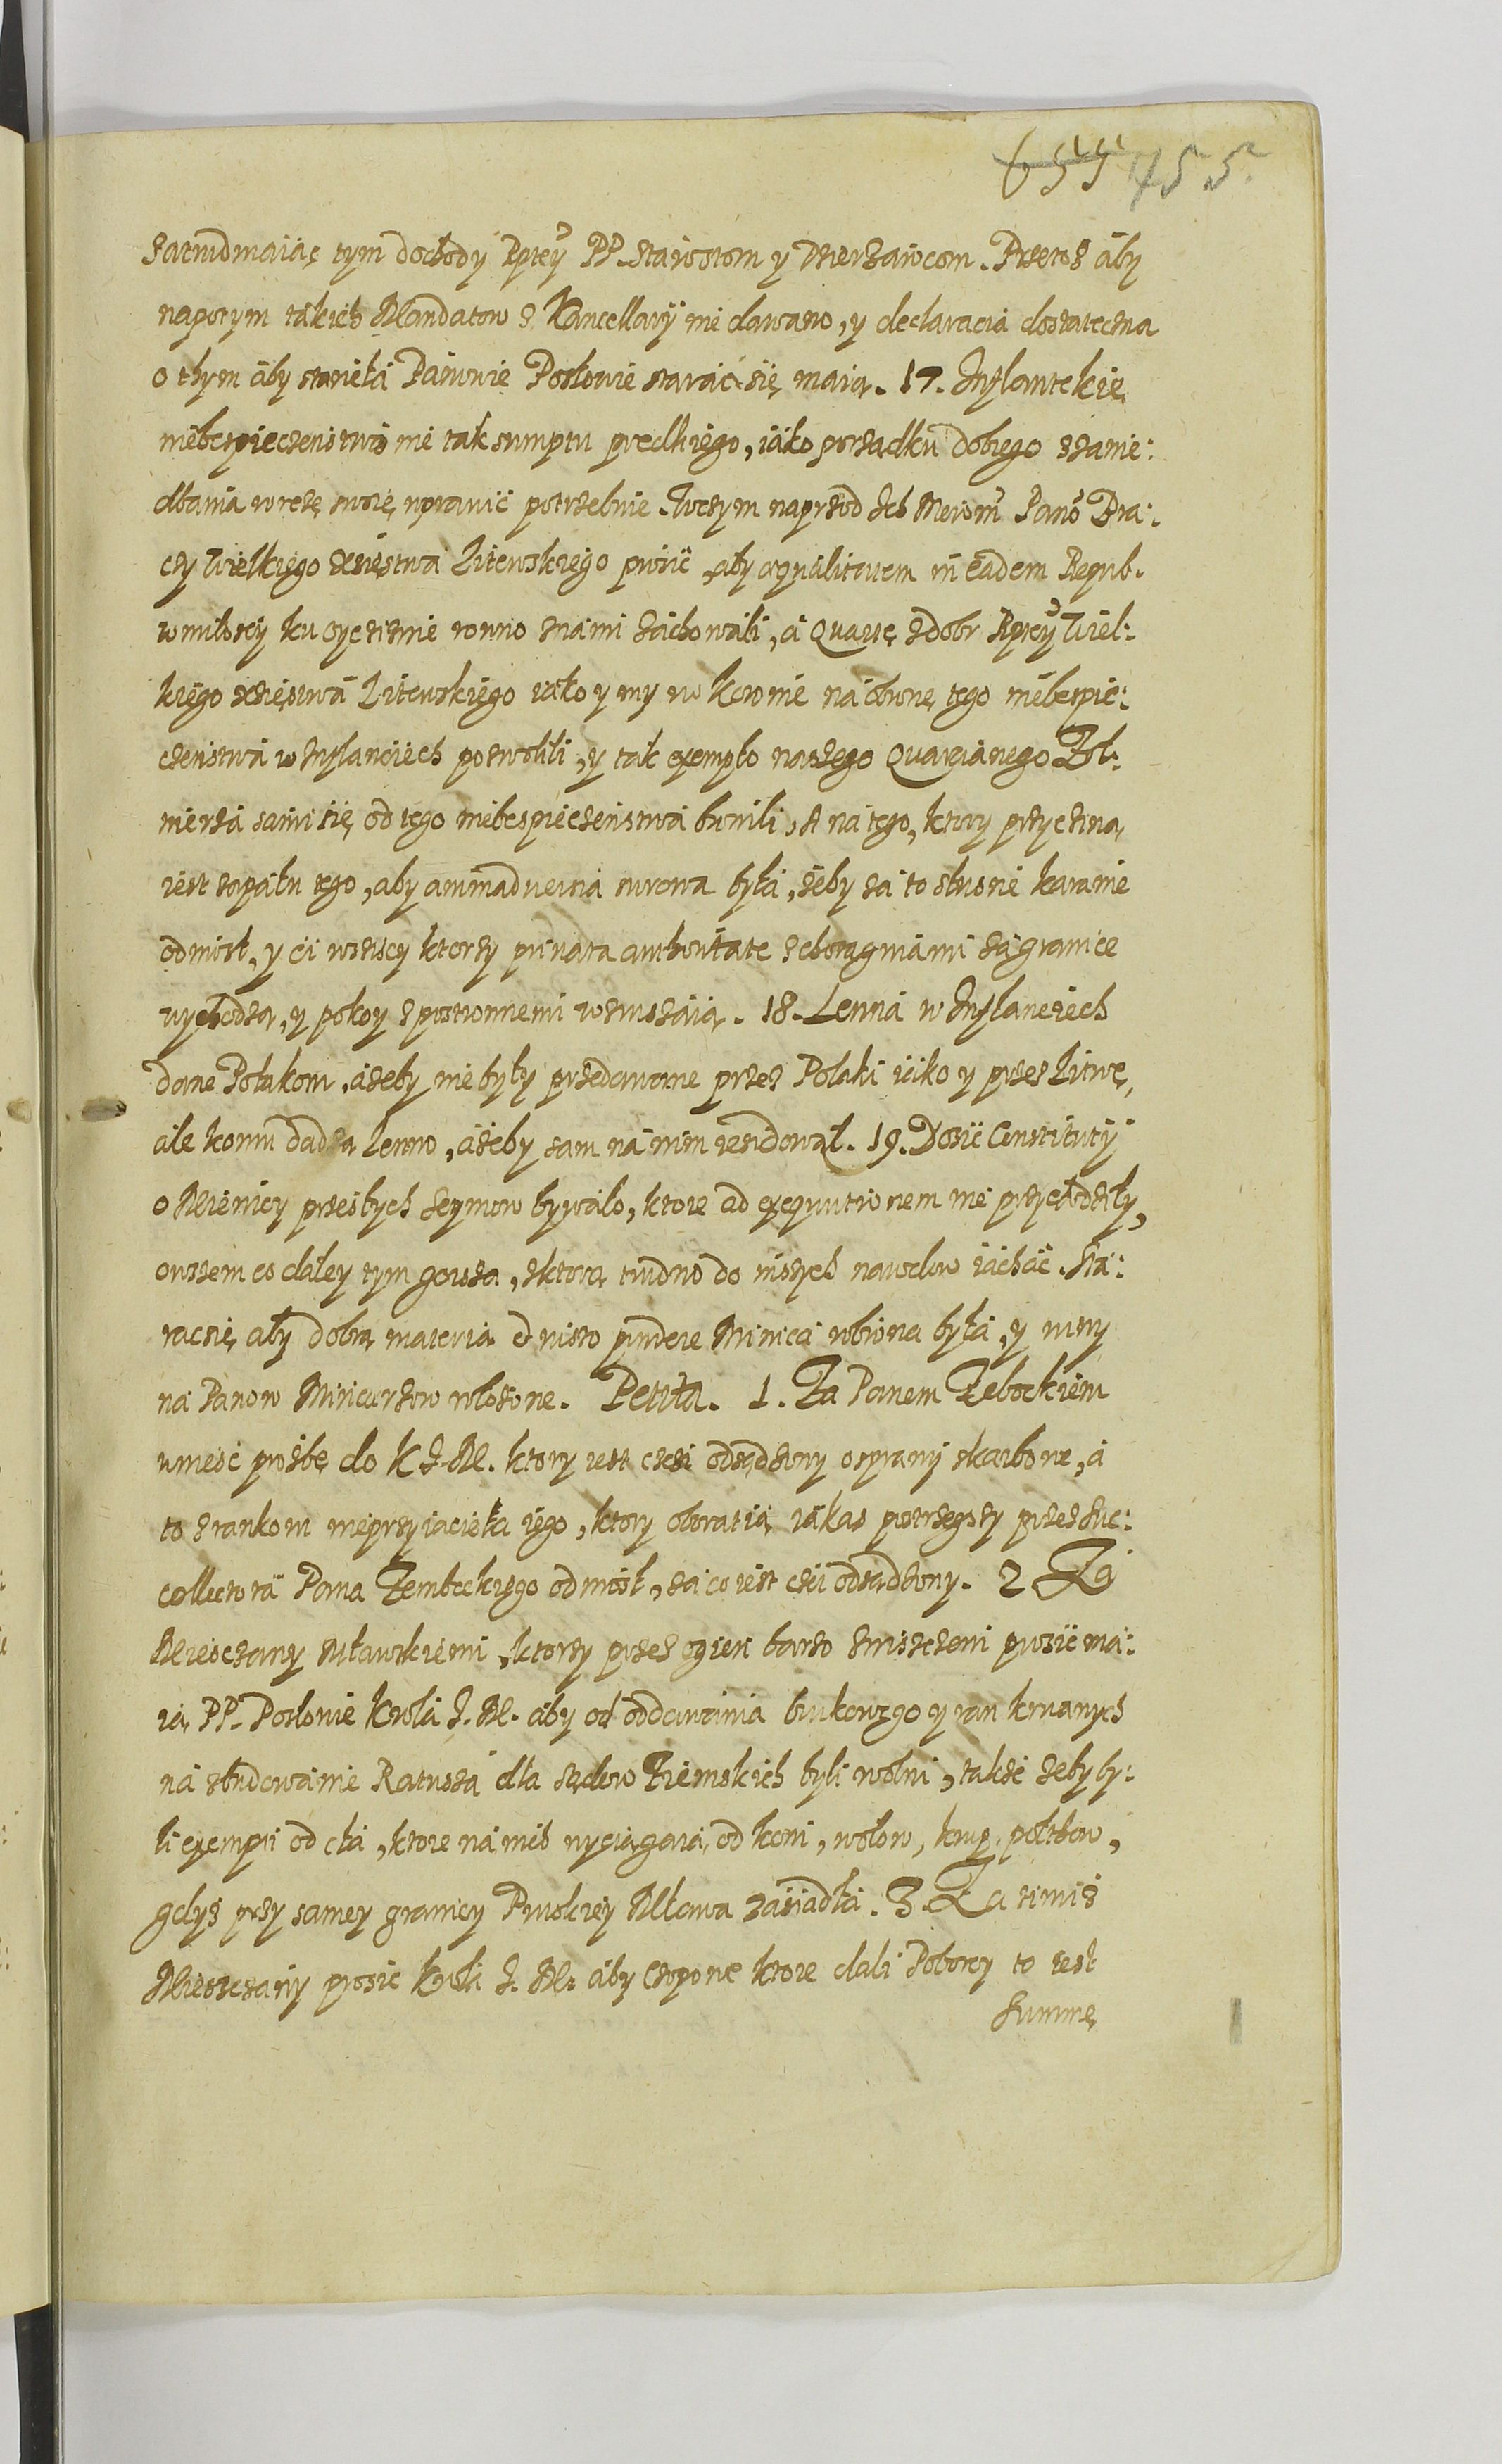 655 455
zatrudmaiąc tym dochody Rptey PP. Starostom y Dzierżawcom. Przetoż aby
napotym takich Mandatow z Kancellary nie dawano, y declaracia dostateczna
o thym aby stanęła Panowie Posłowie starać się maią. 17. Inflantskie
niebespieczeństwo nie tak sumptu prędkiego, iako porządku dobrego z zanie:
dbania w rezę swoię wprawić potrzebuie. Wczym naprzod Ich Mciom Panō Bra:
cey Wielkiego Xsięstwa Litewskiego prosić, aby aequalitatem in eadem Repub.
w miłosci ku oyczyznie rowno znami zachowali, a Quartę z dobr Rptey Wiel:
kiego xsięstwa Litewskiego iako y my w Koronie na obronę tego niebespie:
czenstwa w Inflanciech pozwolili, y tak exemplo naszego Quarcianego Żoł:
nierza sami się od tego niebespieczenstwa bronili, A na tego, ktory przyczyną
iest zapału tego, aby animadversia surowa była, żeby za to słusne karanie
odniosł, y ci wsziscy ktorzy privata authoritate z chorągwiami za granice
wychodzą, y pokoy z postronnemi wzruszaią. 18. Lenna w Inflanciech
dane Polakom, ażeby nie były przedawane przez Polaki iako y przez Litwę,
ale komu dadzą lenno, ażeby sam na nim residował. 19. Dosić Constitutÿ
o Mienicy przeszłych Seymow bywało, ktore ad exequutionem nie przychodziły,
owszem co daley tym gorsza, z ktorą trudno do inszych narodow iachać. Sta:
rac się aby dobrą materia & iusto pondere Minica robiona była, y winy
na Panow Mincarzow włożone. Petita. 1. Za Panem Zebockiem
wnieść prośbę do K J. M. ktory iest czci odsądzony o sprawy skarbowe, a
to z rankom nieprzyiaciela iego, ktory oboratią iakas postrzegszy przez Suc:
collectora Pana Zembockiego odniosł, za co iest czci odsądzony. 2 Za
Miesczany Mławskiemi, ktorzy przez ogien barzo zniszczeni prosić ma:
ią, PP. Posłowie Krola J. M. aby od oddawania brukowego y ran krwawych
na zbudowanie Ratusza dla sądow Ziemskich byli wolni, takze zeby by:
li exempti od cła, ktore na nich wyciągaią, od koni, wołow, krup, połthow,
gdysz przy samey granicy Pruskiey Mława zasiadła. 3. Za timiż
Miesczany prosic Krola J. M. aby Czopowe ktore dali Poborcy to iest
Summę